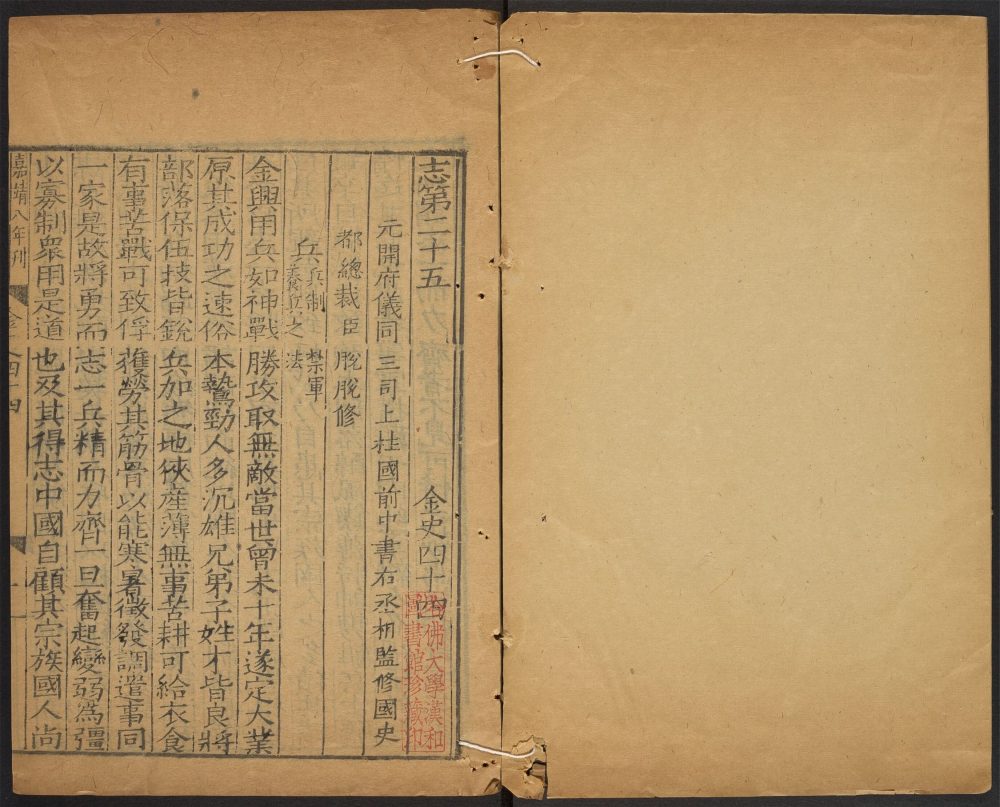 志第二十五 金史四十四
哈佛大學漢和
圖書館珍藏印
元開府儀同三司上柱國前中書右丞相監修國史
都總裁臣脫脫修
兵兵制 禁軍
養兵之法
金興用兵如神戰勝攻取無敵當世曾未十年遂定大業
原其成功之速俗本鷙勁人多沉雄兄弟子姓才皆良將
部落保伍技皆銳兵加之地狹産薄無事苦耕可給衣食
有事苦戰可致俘獲勞其筋骨以能寒暑徵發調遣事同
一家是故將勇而志一兵精而力齊一旦奮起變弱為彊
以寡制衆用是道也及其得志中國自顧其宗族國人尚
嘉靖八年刊 金史四十四 一